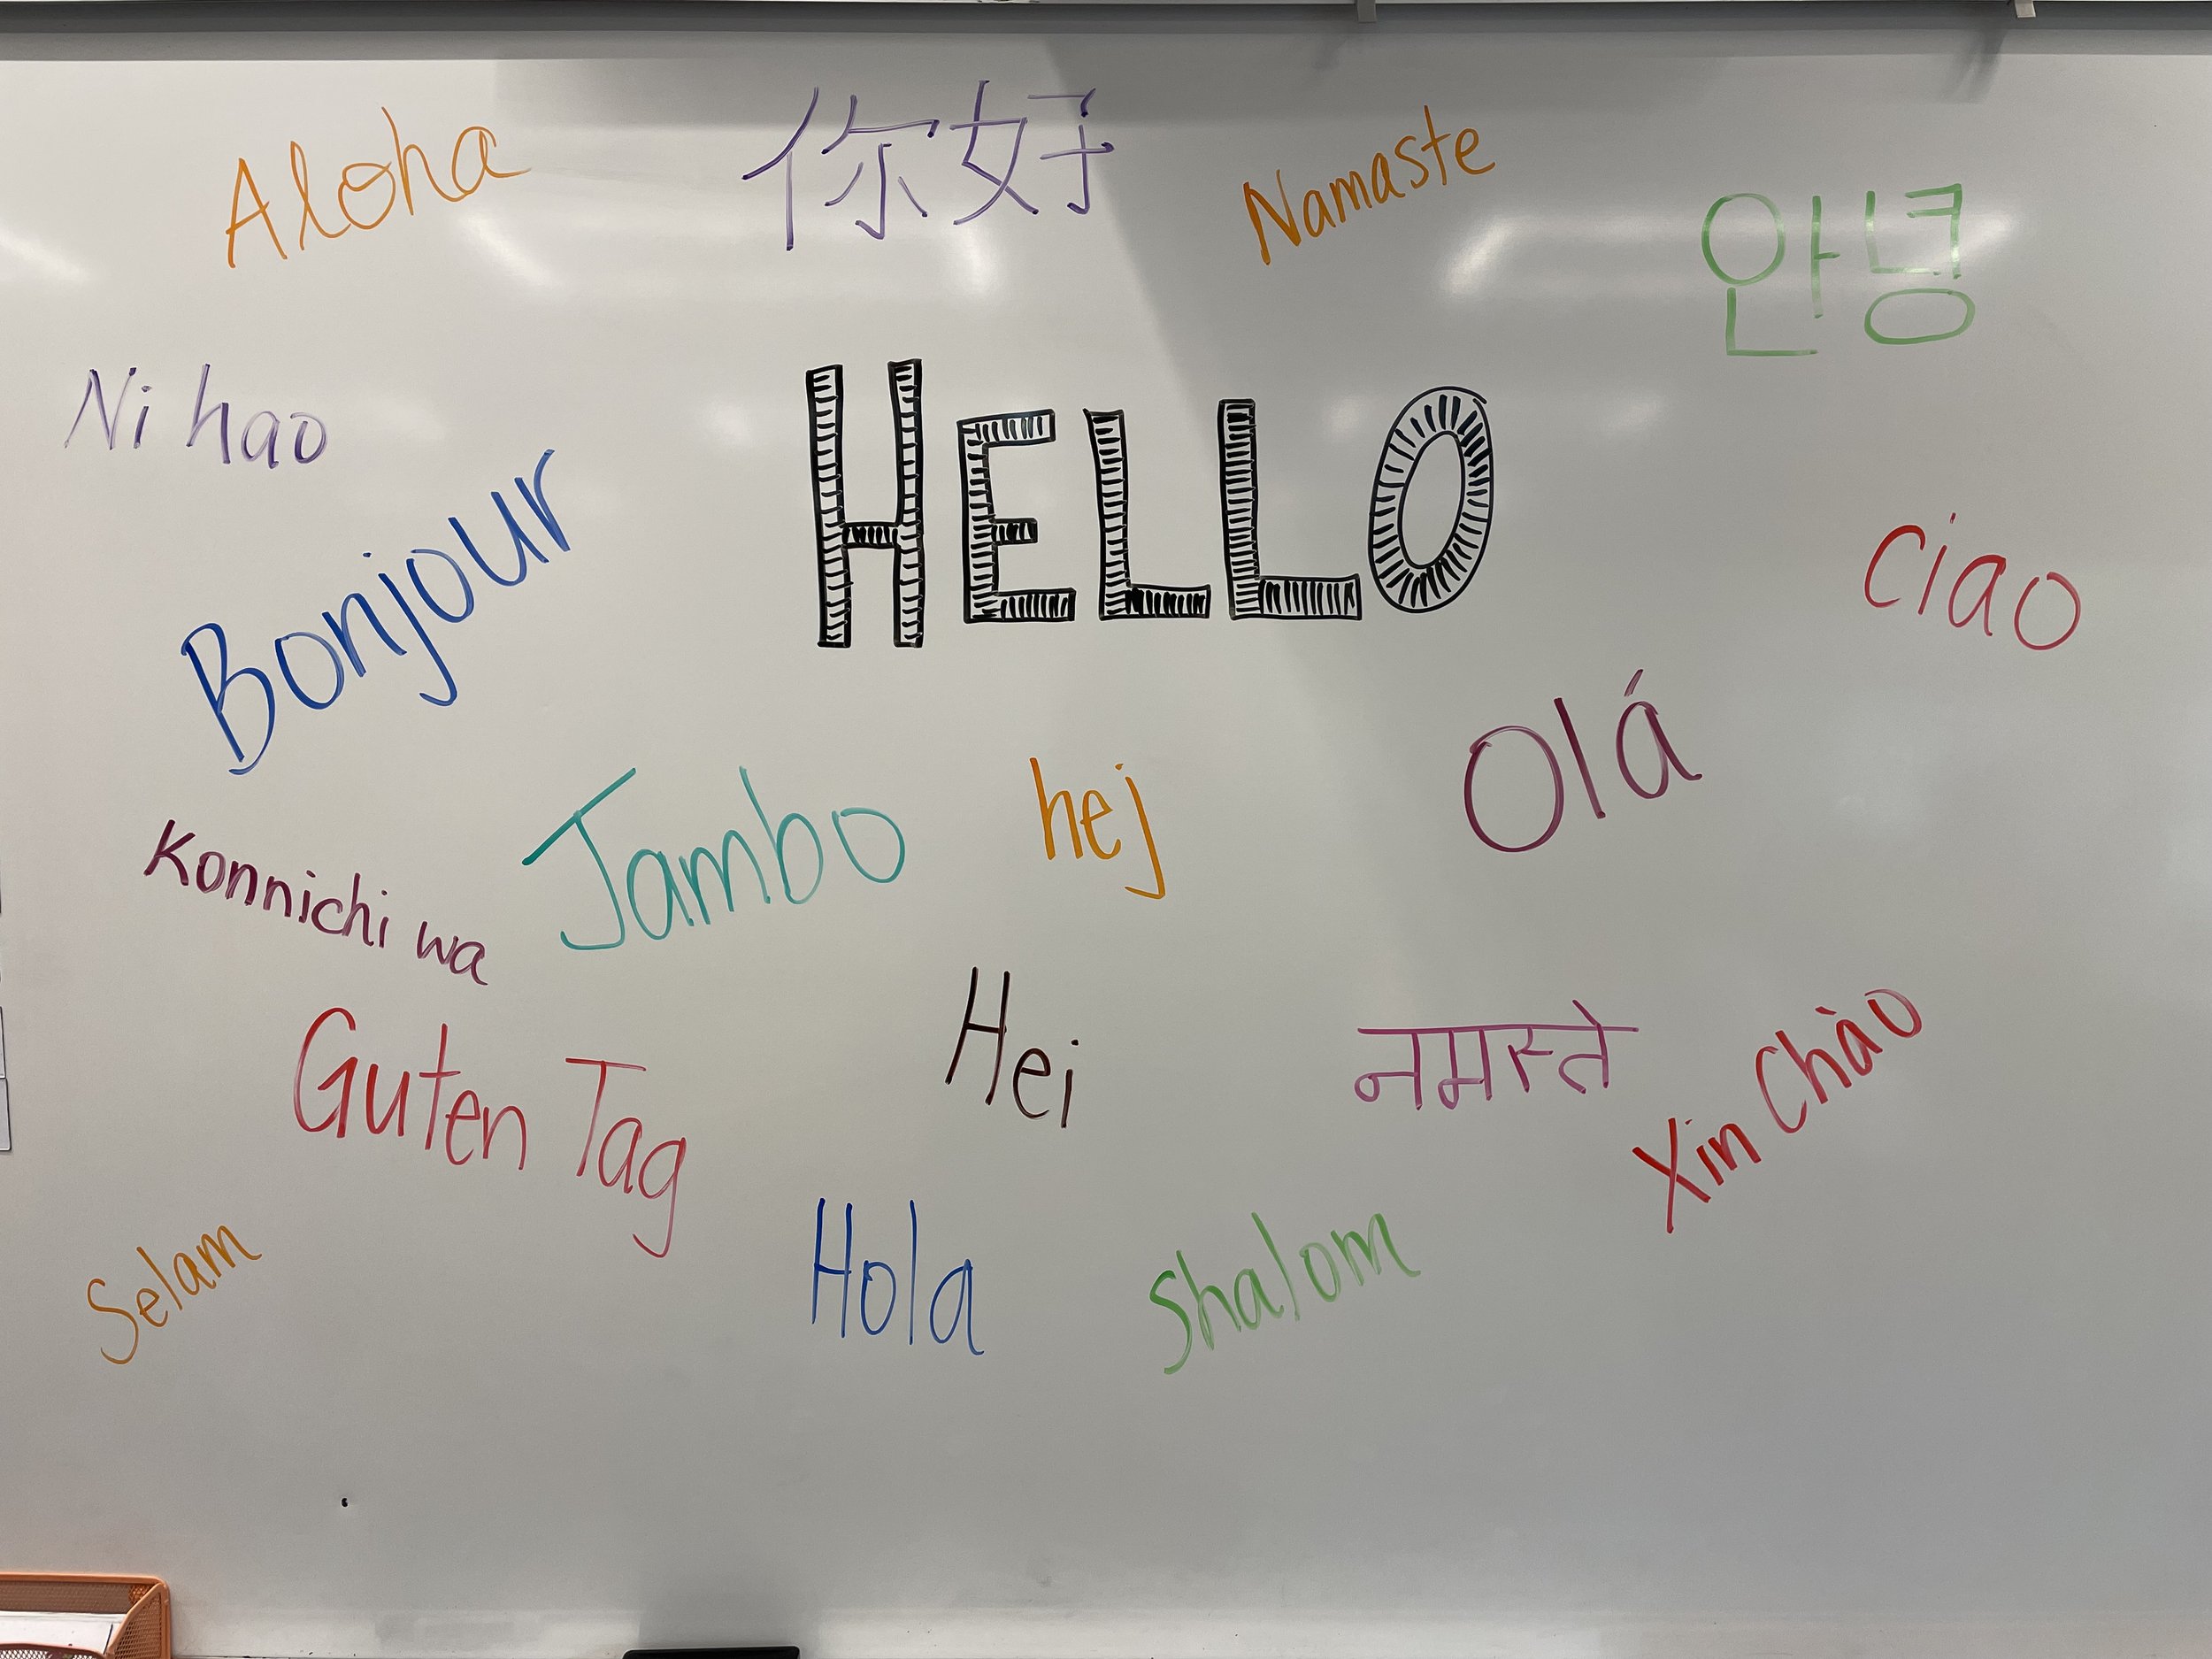 Aloha
你好
Namaste
안녕
Ni hao
HELLO
Bonjour
Ciao
Olá
Jambo
hej
Konnichi wa
Hei
Guten Tag
नमस्ते
Xin Chào
Selam
Hola
Shalom